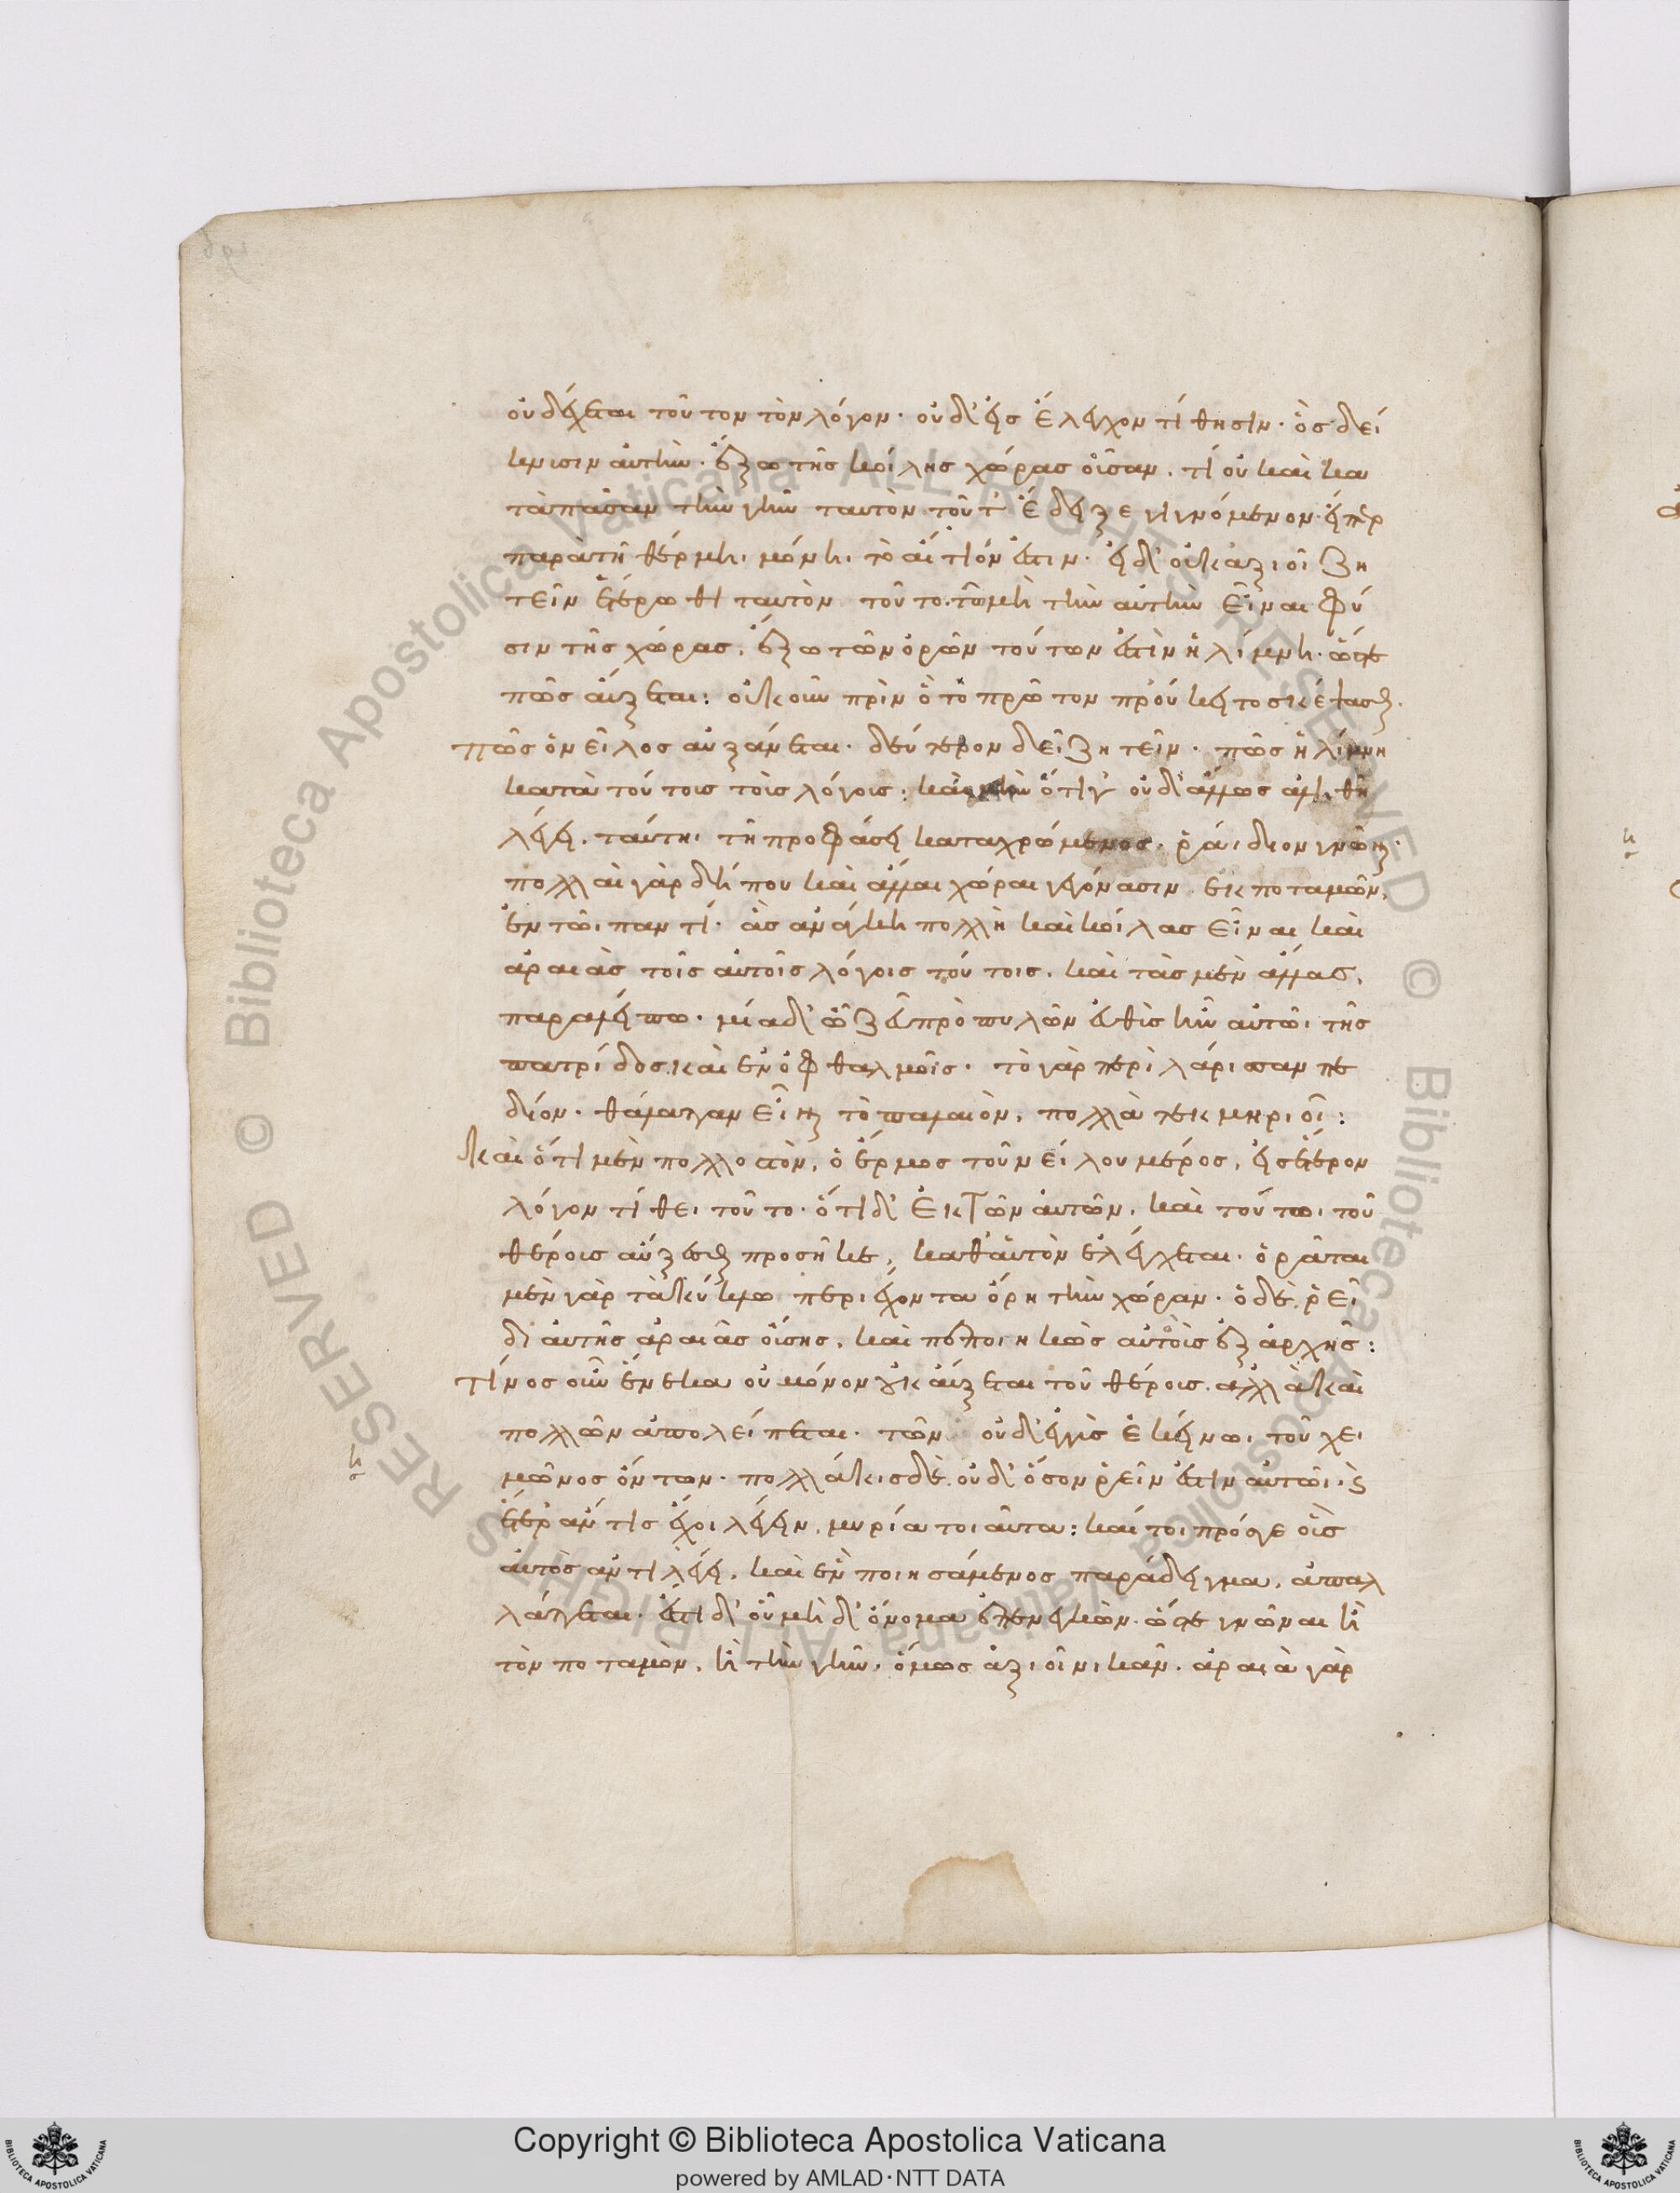 οὐ δέχεται τοῦτον τὸν λόγον· οὐδ' εἰς ἔλεγχον τίθησιν· ὃς δεί
κνυσιν αὐτὴν· ἔξω τῆς κοίλης χώρας οὖσαν. τί οὐ καὶ κα
τὰ πᾶσαν τὴν γῆν ταυτὸν τοῦτ' ἔδειξε γιγνόμενον· εἴπερ
παρὰ τῆ θέρμη, μόνη, τὸ αἴτιόν ἐστιν· εἰ δ' οὐκ ἀξιοῖ ζη
τεῖν ἑτέρωθι ταυτὸν τοῦτο· τῶ μὴ τὴν αὐτὴν εἶναι φύ
σιν τῆς χώρας, ἔξω τῶν ὁρῶν τούτων ἐστὶν ἡ λίμνη· ὥστε
πῶς αὔξεται: οὐκοῦν πρὶν ὃ τὸ πρῶτον προὔκειτο σκέψασθαι·
πῶς ὁ νεῖλος αὐξάνεται· δεύτερον δεῖ ζητεῖν· πῶς ἡ λίμνη
κατὰ τούτοις τοῖς λόγοις: καὶ μὴν ὅτι γ' οὐδ' ἄλλως ἀληθῆ
λέγει, ταύτῃ τῆ προφάσει καταχρώμενος· ῥάιδιον γνῶναι·
πολλαὶ γὰρ δήπου καὶ ἄλλαι χῶραι γεγόνασιν ἐκ ποταμῶν,
ἐν τῶι παντί· ἃς ἀνάγκη πολλὴ καὶ κοίλας εἶναι καὶ
ἀραιὰς τοῖς αὐτοῖς λόγοις τούτοις. καὶ τὰς μὲν ἄλλας,
παραλείπω· μία δ' ᾧζε προπυλῶν ἐστὶς ἦν αὐτῶι τῆς
πατρίδος καὶ ἐν ὀφθαλμοῖς· τὸ γὰρ περὶ λάρισσαν πε
δίον· θάλατταν εἶναι τὸ παλαιὸν, πολλὰ τεκμηριοῖ:
καὶ ὅτι μὲν πολλοστὸν, ὁ ἕρμος τοῦ νείλου μέρος, εἰς ἕτερον
λόγον τίθει τοῦτο· ὅτι δ' ἐκ τῶν αὐτῶν, καὶ τούτωι τοῦ
θέρους αὔξεσθαι προσῆκε, καθ' αὑτὸν ἐλέγχεται· ὁρᾶται
μὲν γὰρ τὰ κύκλω περιέχοντα ὄρη τὴν χώραν· ὁ δὲ ῥεῖ
δι' αὐτῆς ἀραιᾶς οὔσης, καὶ πεποιηκὼς αὐτὸς ἐξ ἀρχῆς:
τίνος οὖν ἕνεκα οὐ μόνον οὐκ αὔξεται τοῦ θέρους. ἀλλὰ καὶ
πολλῶν ἀπολείπεται· τῶν οὐδ' ἐγγὺς ἐκείνωι τοῦ χει
μῶνος ὄντων· πολλάκις δὲ οὐδ' ὅσον ῥεῖν ἐστιν αὐτῶι, καὶ
ἕτερ' ἄν τις ἔχοι λέγειν, μυρία τοιαῦτα: καίτοι πρός γε οἷς
αὐτὸς ἀντιλέγει, καὶ ἓν ποιησάμενος παράδειγμα, ἀπαλ
λάττεται· ἔστι δ' οὗ μὴ δ' ὄνομα ἔστιν εἰπεῖν· ὥστε γνῶναι ἢ
τὸν ποταμὸν, ἢ τὴν γῆν· ὅμως ἀξιοῖ νικᾶν· ἀραιὰ γὰρ
Copyright © Biblioteca Apostolica Vaticana
powered by AMLAD·NTT DATA